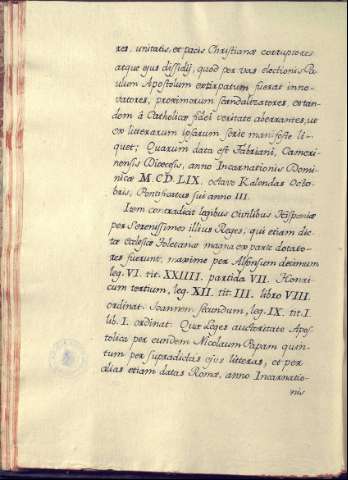 res, unitatis, et pacis Christianæ corruptores
atque ejus dissidij, quod per vas electionis Pau-
ulum Apostolum extirpatum fuerat inno-
vatores, proximorum scandalizatores, et tan-
dem à Catholicæ fidei veritate aberrantes, ut
ex litterarum ipsarum serie manifeste li-
quet; Quarum data est Fabriani, Cameri-
nensis Diœcesis, anno Incarnationis Domi-
nicæ M.CD.LIX. octavo Kalendas Octo-
bris, Pontificatus sui anno III.
Item contradicit legibus Civilibus Hispaniæ
per Serenissimos illius Reges, qui etiam dic-
tæ ecclesiæ Toletanæ magna ex parte dotato-
res fuerunt, maxime per Alfonsum decimum
leg. VI. tit. XXIIII. partida VII. Henri-
cum tertium, leg. XII. tit. III. libro VIII.
ordinat. Joannem secundum, leg. IX. tit. I.
lib. I. ordinat. Quæ Leges auctoritate Apos-
tolica per eundem Nicolaum Papam quin-
tum per supradictas ejus litteras, et per
alias etiam datas Romæ, anno Incarnatio-
nis